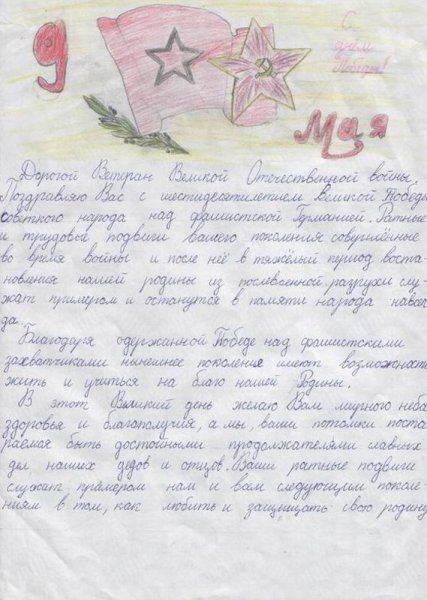 9
С
днём
Победы!
Мая
Дорогой Ветеран Великой Отечественной войны,
Поздравляю Вас с шестидесятилетием Великой Победы
советкого народа над фашистской Германией. Ратные
и трудовые подвиги вашего поколения совершённые
во время войны и после неё в тяжёлый период воста-
новления нашей родины из послевоенной разрухи слу-
жат примером и останутся в памяти народа навсег-
да.
Благодаря одержанной Победе над фашистскими
захватчиками нынешнее поколение имеют возможность
жить и учиться на благо нашей Родины.
В этот Великий день желаю Вам мирного неба
здоровья и благополучия, а мы, ваши потомки поста-
раемся быть достойными продолжателями славных
дел наших дедов и отцов. Ваши ратные подвиги
служат примером нам и вам следующим поколе-
ниям в том, как любить и защищать свою родину